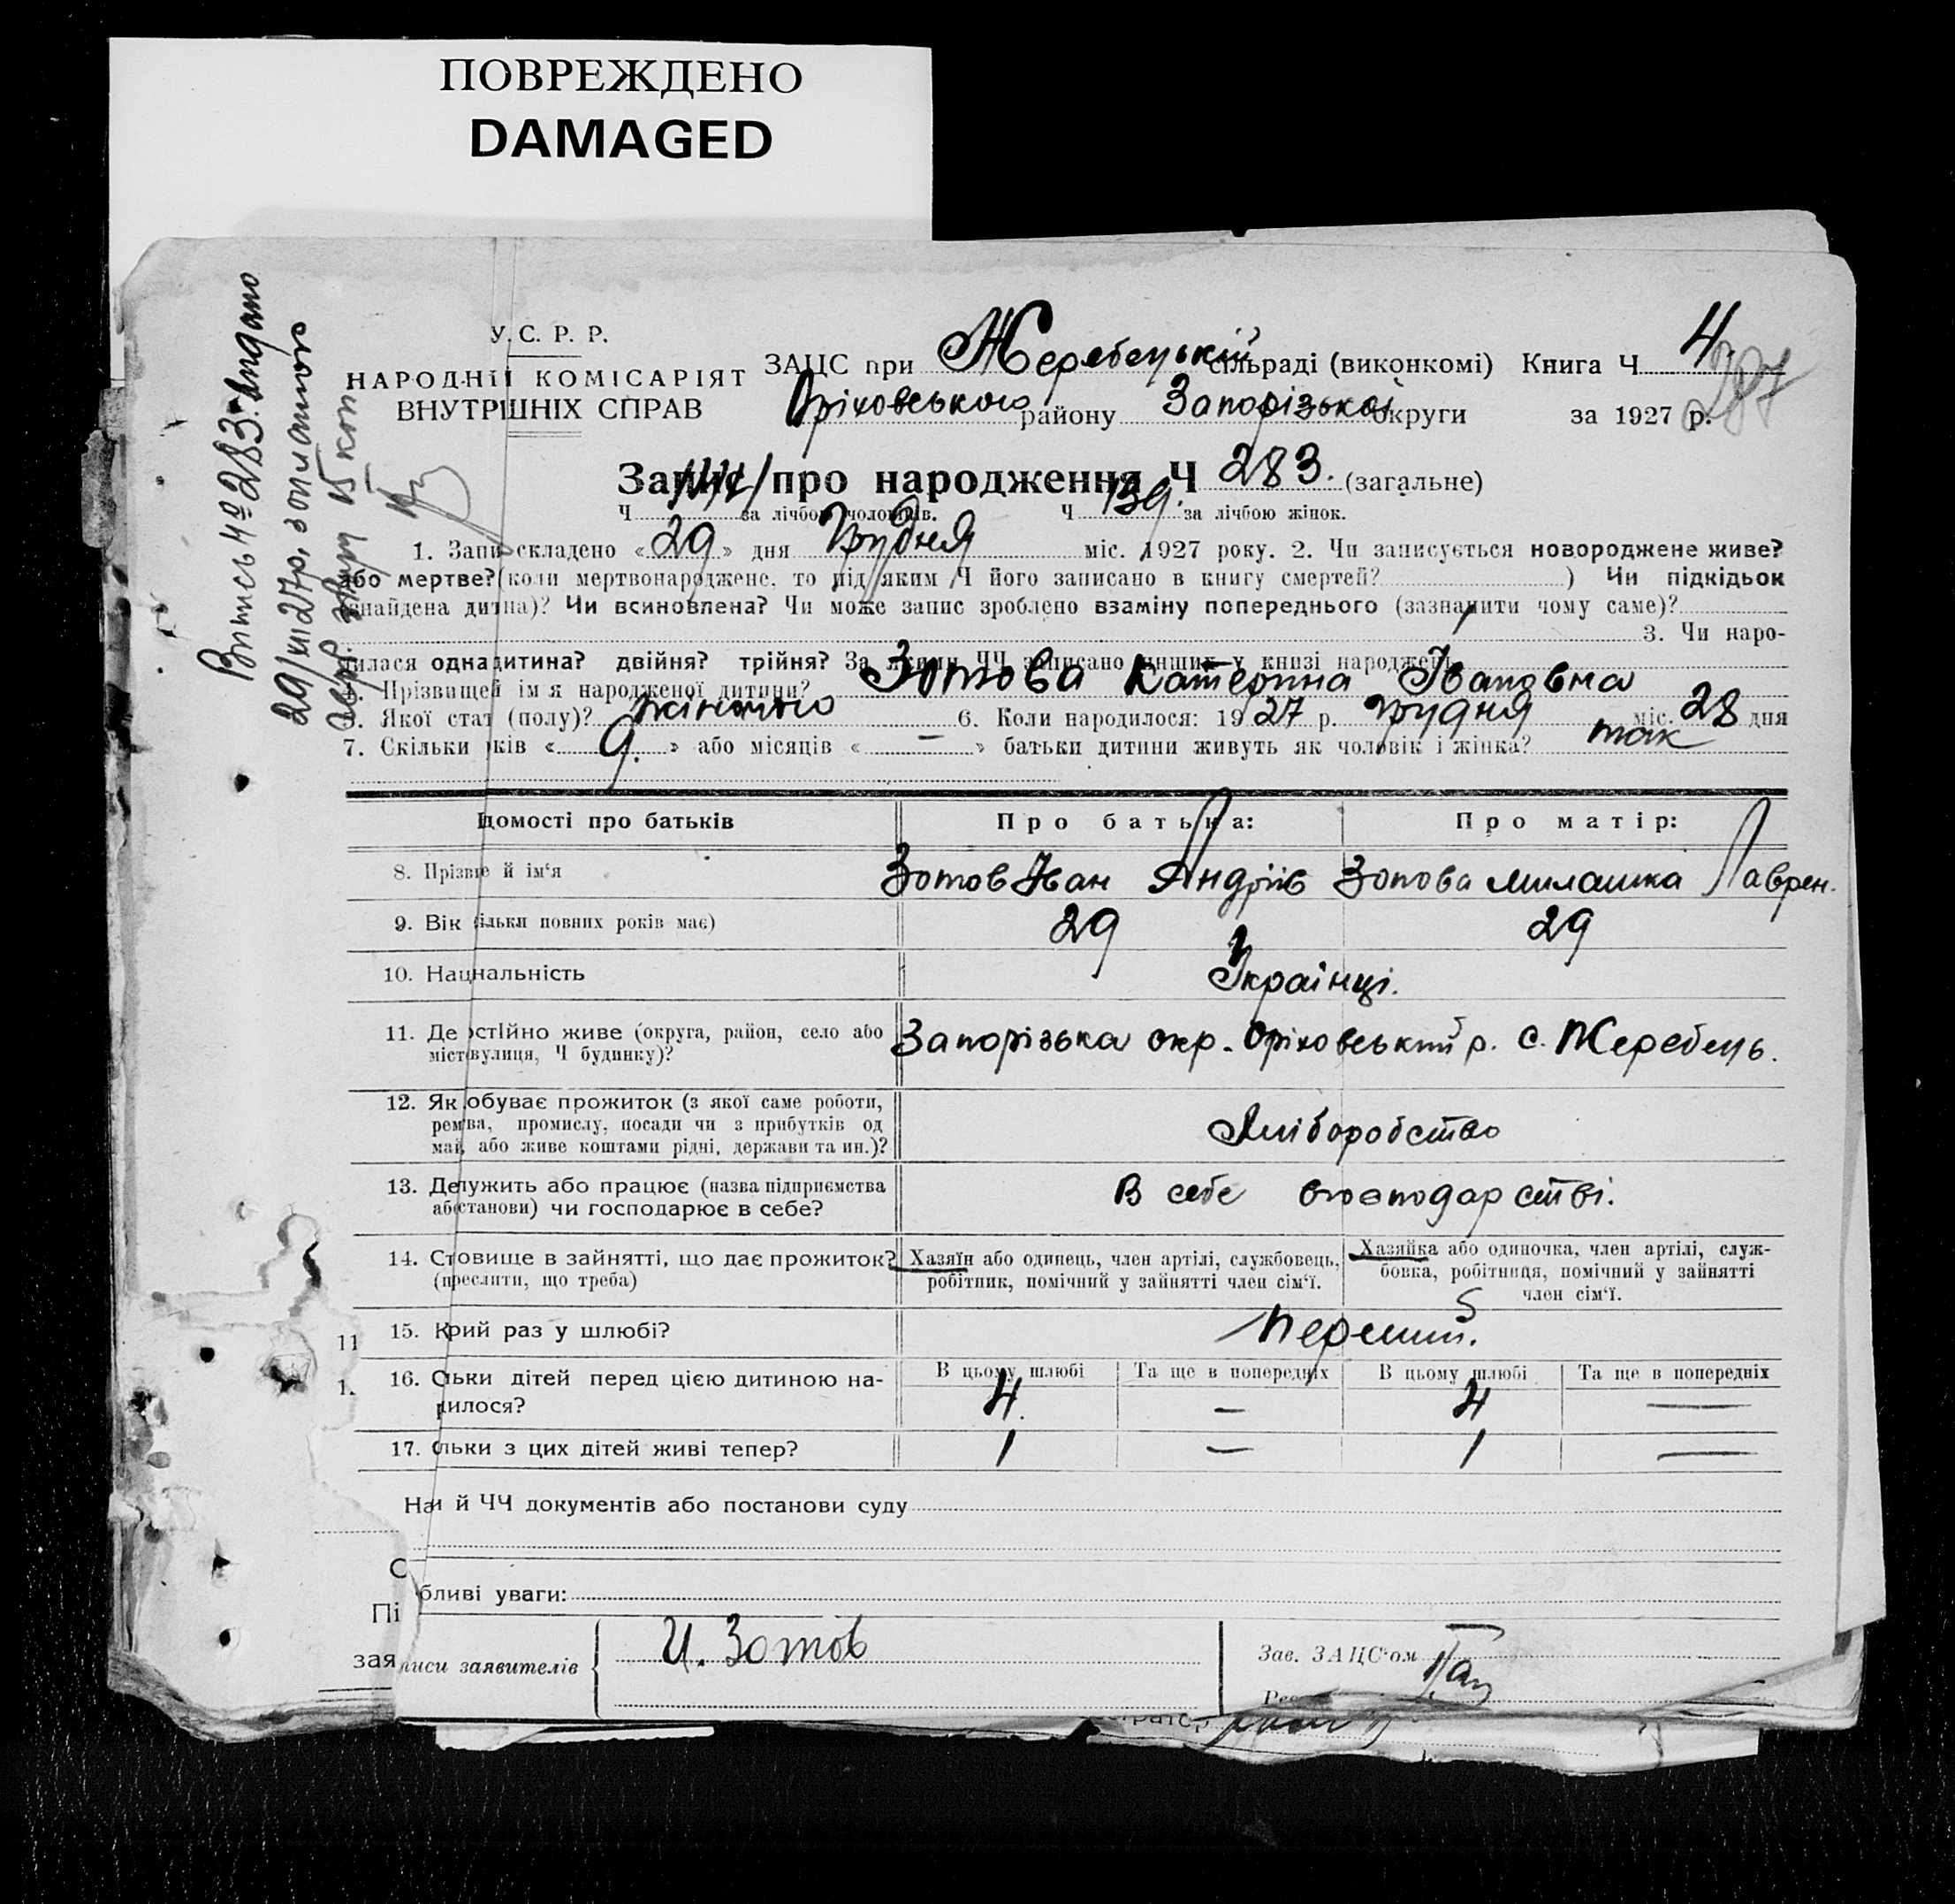 ПОВРЕЖДЕНО
DAMAGED
У.С.Р.Р.
НАРОДНІЙ КОМІСАРІЯТ
ВНУТРІШНІХ СПРАВ
ЗАЦС при Жеребецькій сільраді (виконкомі) Книга Ч 4.
287
Оріховського району Запорізької округи за 1927 р.
Запис про народження Ч 283. (загальне)
Ч за лічбою чоловіків. Ч 139. за лічбою жінок.
1. Запис складено «29» дня Грудня міс. 1927 року. 2. Чи записується новороджене живе?
або мертве? (коли мертвонароджене, то під яким Ч його записано в книгу смертей? ) Чи підкідьок
знайдена дитина)? Чи всиновлена? Чи може запис зроблено взаміну попереднього (зазначити чому саме)?
3. Чи наро-
дилася одна дитина? двійня? трійня? За якими ЧЧ записано инших у книзі народжень
4. Прізвище й ім'я народженої дитини? Зотова Катерина Івановна
5. Якої статі (полу)? жіночого 6. Коли народилося: 1927 р. Грудня міс. 28 дня
7. Скільки років «9.» або місяців «–» батьки дитини живуть як чоловік і жінка? так
Відомості про батьків Про батька: Про матір:
8. Прізвище й ім'я Зотов Іван Андріїв Зотова Милашка Лаврен.
9. Вік (скільки повних років має) 29 29
10. Національність Українці.
11. Де постійно живе (округа, район, село або Запорізька окр. Оріховський р. с. Жеребець.
місто, вулиця, Ч будинку)?
12. Як добуває прожиток (з якої саме роботи,
ремества, промислу, посади чи з прибутків од
майна, або живе коштами рідні, держави та ин.)? Хліборобство
13. Де служить або працює (назва підприємства
або установи) чи господарює в себе? В себе в господарстві.
14. Становище в зайнятті, що дає прожиток? Хазяїн або одинець, член артілі, службовець, Хазяйка або одиночка, член артілі, служ-
(преслити, що треба) робітник, помічний у зайнятті член сім'ї. бовка, робітниця, помічний у зайнятті
член сім'ї.
15. Крий раз у шлюбі? Перший.
16. Скільки дітей перед цією дитиною на- В цьому шлюбі Та ще в попередніх В цьому шлюбі Та ще в попередніх
родилося? 4. – 4 –
17. Скільки з цих дітей живі тепер? 1 – 1 –
й ЧЧ документів або постанови суду
бливі уваги:
писи заявителів И. Зотов Зав. ЗАЦС'ом
Випись Ч 283. видано
29/XII 27р, зоплатою